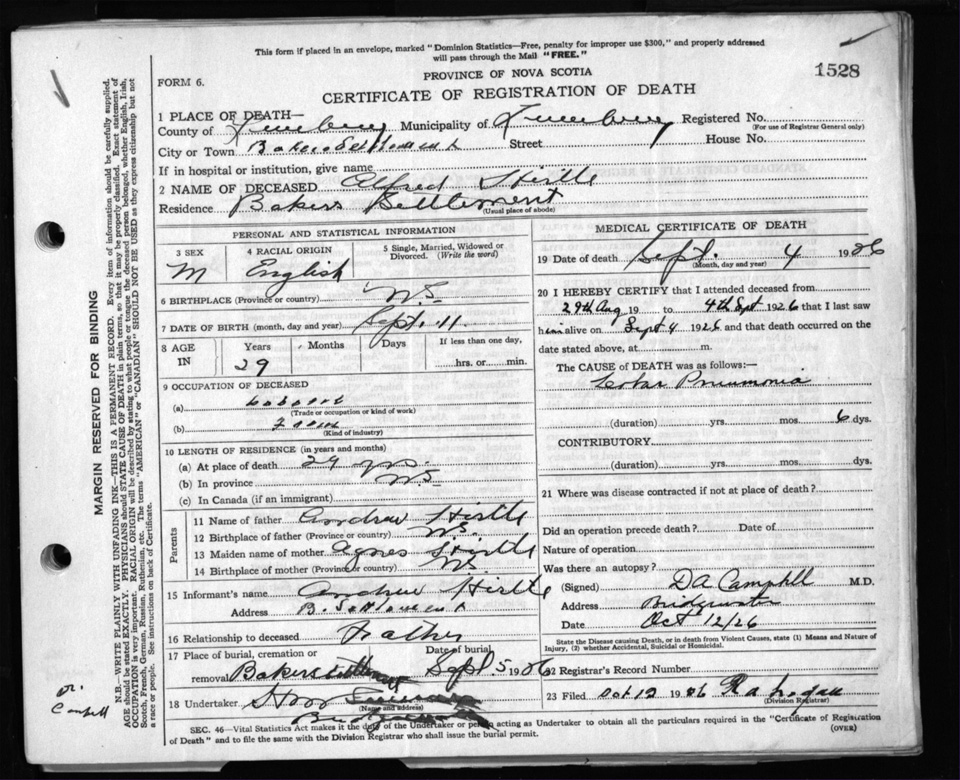 This form if placed in an envelope, marked "Dominion Statistics—Free, penalty for improper use $300," and properly addressed
will pass through the Mail "FREE."
PROVINCE OF NOVA SCOTIA
1528
FORM 6.
CERTIFICATE OF REGISTRATION OF DEATH
1 PLACE OF DEATH—
County of Lunenburg Municipality of Lunenburg Registered No.
(For use of Registrar General only)
City or Town Bakers Settlement Street House No.
If in hospital or institution, give name
2 NAME OF DECEASED Alfred Hirtle
Residence Bakers Settlement
(Usual place of abode)
PERSONAL AND STATISTICAL INFORMATION
3 SEX 4 RACIAL ORIGIN 5 Single, Married, Widowed or Divorced. (Write the word)
M English
6 BIRTHPLACE (Province or Country) N.S.
7 DATE OF BIRTH (month, day and year) Sept. 11.
8 AGE IN Years Months Days If less than one day,
29 hrs. or min.
9 OCCUPATION OF DECEASED
(a)
(Trade or occupation or kind of work)
(b) Farm
(Kind of industry)
10 LENGTH OF RESIDENCE (in years and months)
(a) At place of death 29 yrs.
(b) In province NS
(c) In Canada (if an immigrant)
Parents
11 Name of father Andrew Hirtle
12 Birthplace of father (Province or country) N.S.
13 Maiden name of mother Agnes Hirtle
14 Birthplace of mother (Province or country) NS.
15 Informant's name Andrew Hirtle
Address B. Settlement
16 Relationship to deceased Father
17 Place of burial, cremation or removal Bakers Settlement Date of burial Sept 5 1926
18 Undertaker
(Name and address)
Bridgewater
MEDICAL CERTIFICATE OF DEATH
19 Date of death Sept. 4 1926
(Month, day and year)
20 I HEREBY CERTIFY that I attended deceased from
29th Aug 19 to 4th Sept 1926 that I last saw
him alive on Sept 4 1926 and that death occurred on the
date stated above, at m.
The CAUSE of DEATH was as follows:—
Lobar Pneumonia
(duration) yrs. mos. 6 dys.
CONTRIBUTORY
(duration) yrs. mos. dys.
21 Where was disease contracted if not at place of death?
Did an operation precede death? Date of
Nature of operation
Was there an autopsy?
(Signed) D A Campbell M.D.
Address Bridgewater
Date Oct 12/26
State the Disease causing Death, or in death from Violent Causes, state (1) Means and Nature of
Injury, (2) whether Accidental, Suicidal or Homicidal.
22 Registrar's Record Number
23 Filed Oct 12 1926
(Division Registrar)
SEC. 46—Vital Statistics Act makes it the duty of the Undertaker or person acting as Undertaker to obtain all the particulars required in the "Certificate of Registration
of Death" and to file the same with the Division Registrar who shall issue the burial permit.
(OVER)
MARGIN RESERVED FOR BINDING
N.B.—WRITE PLAINLY WITH UNFADING INK—THIS IS A PERMANENT RECORD. Every item of information should be carefully supplied.
AGE should be stated EXACTLY. PHYSICIANS should STATE CAUSE OF DEATH in plain terms, so that it may be properly classified. Exact statement of
OCCUPATION is very important. RACIAL ORIGIN will be described by stating to what people or tongue the deceased person belonged, whether English, Irish,
Scotch, French, German, Russian, Ruthenian, etc. The terms "AMERICAN" or "CANADIAN" SHOULD NOT BE USED as they express citizenship but not
a race or people. See instructions on back of Certificate.
Dr.
Campbell